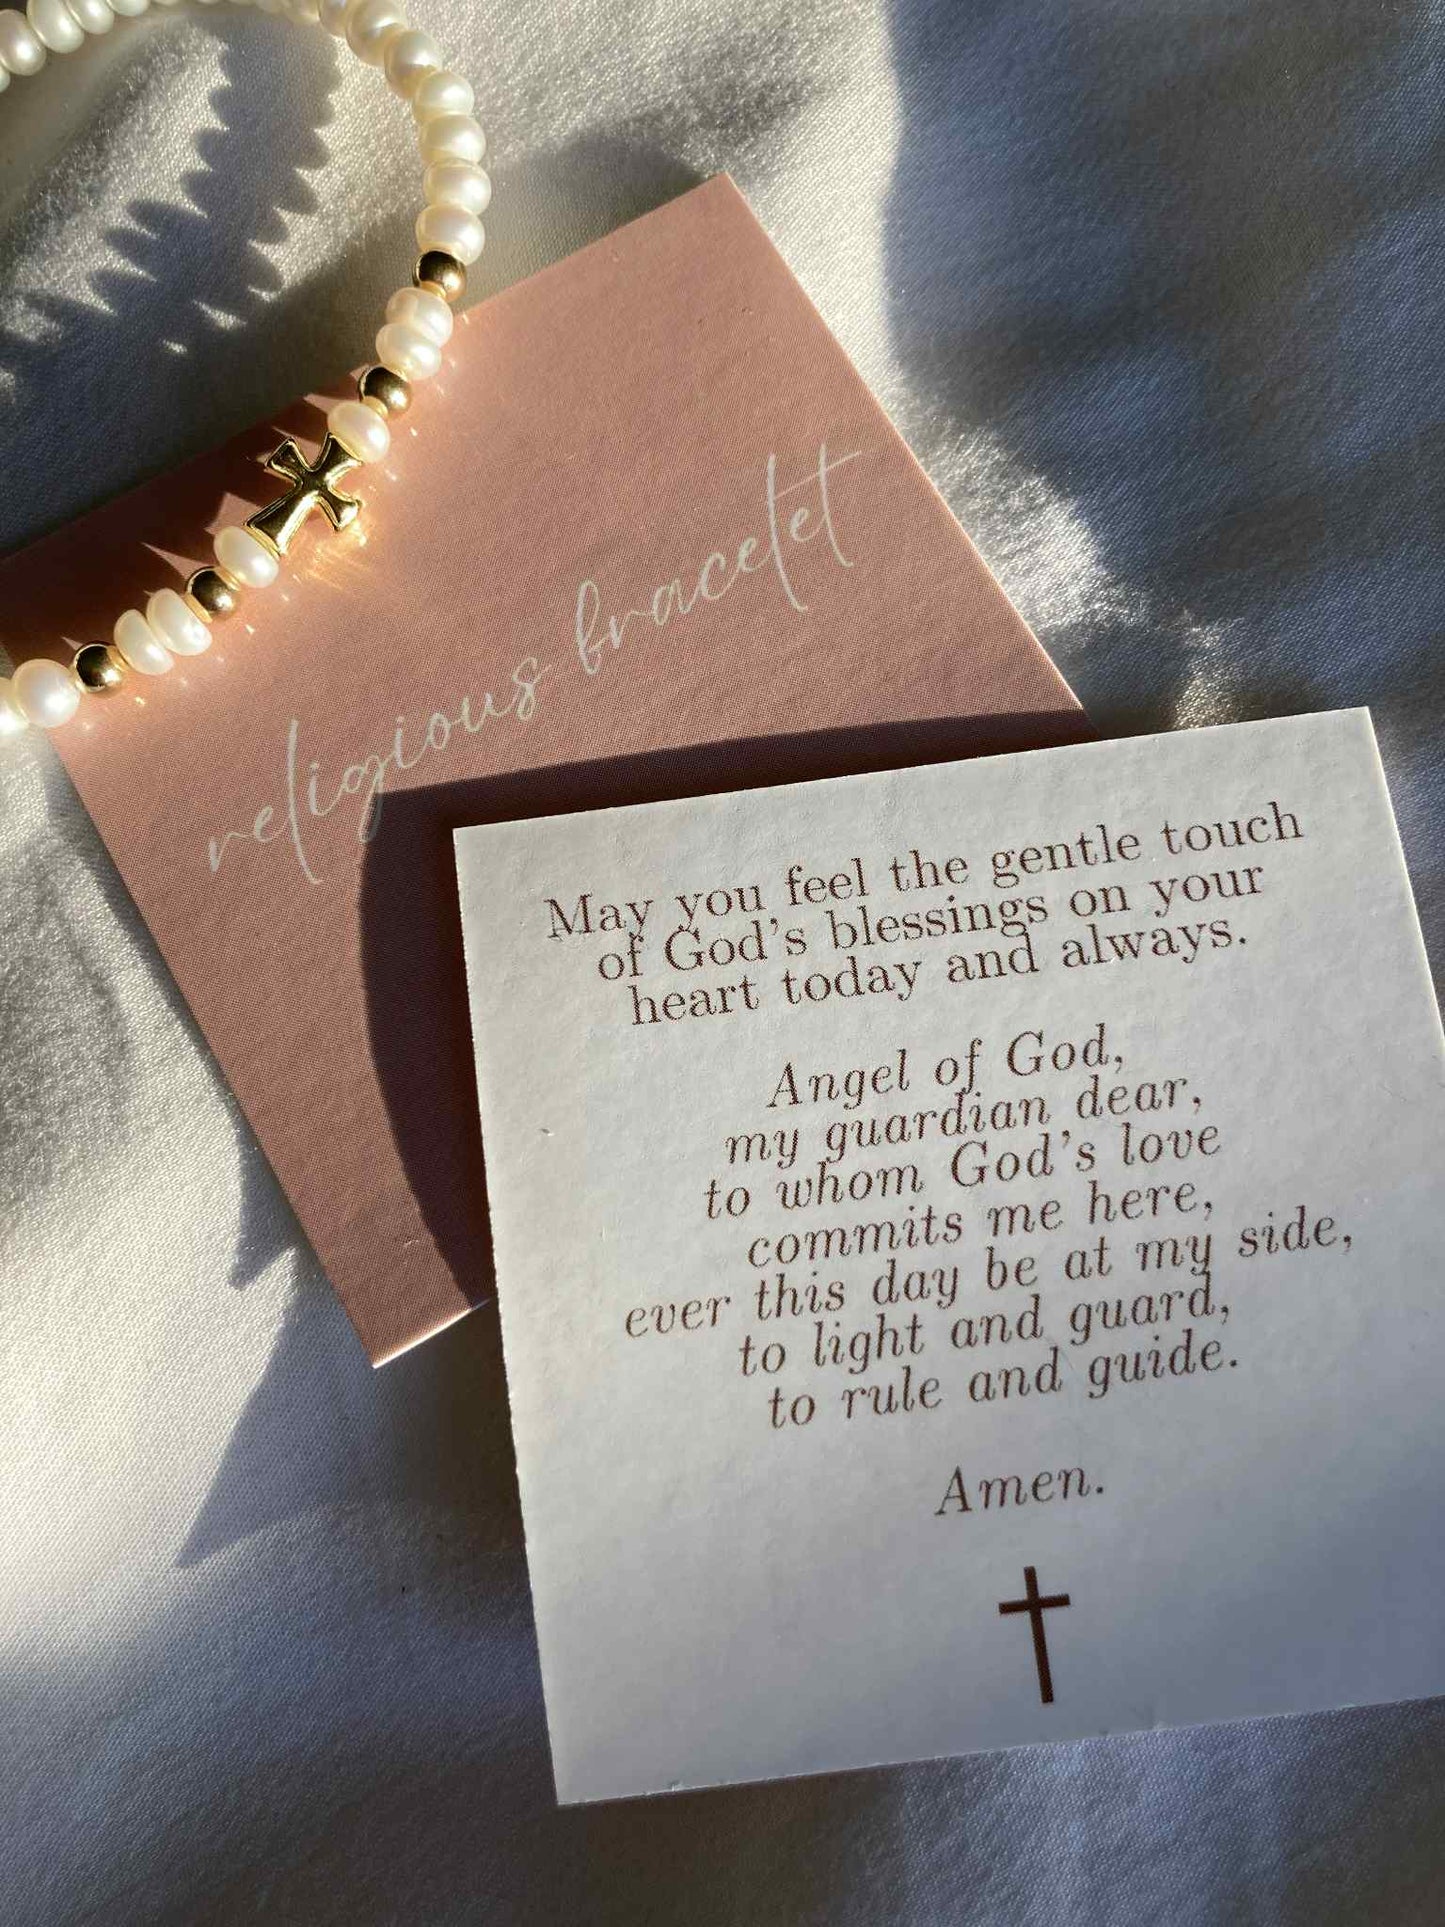 religious bracelet
May you feel the gentle touch
of God's blessings on your
heart today and always.
Angel of God,
my guardian dear,
to whom God's love
commits me here,
ever this day be at my side,
to light and guard,
to rule and guide.
Amen.